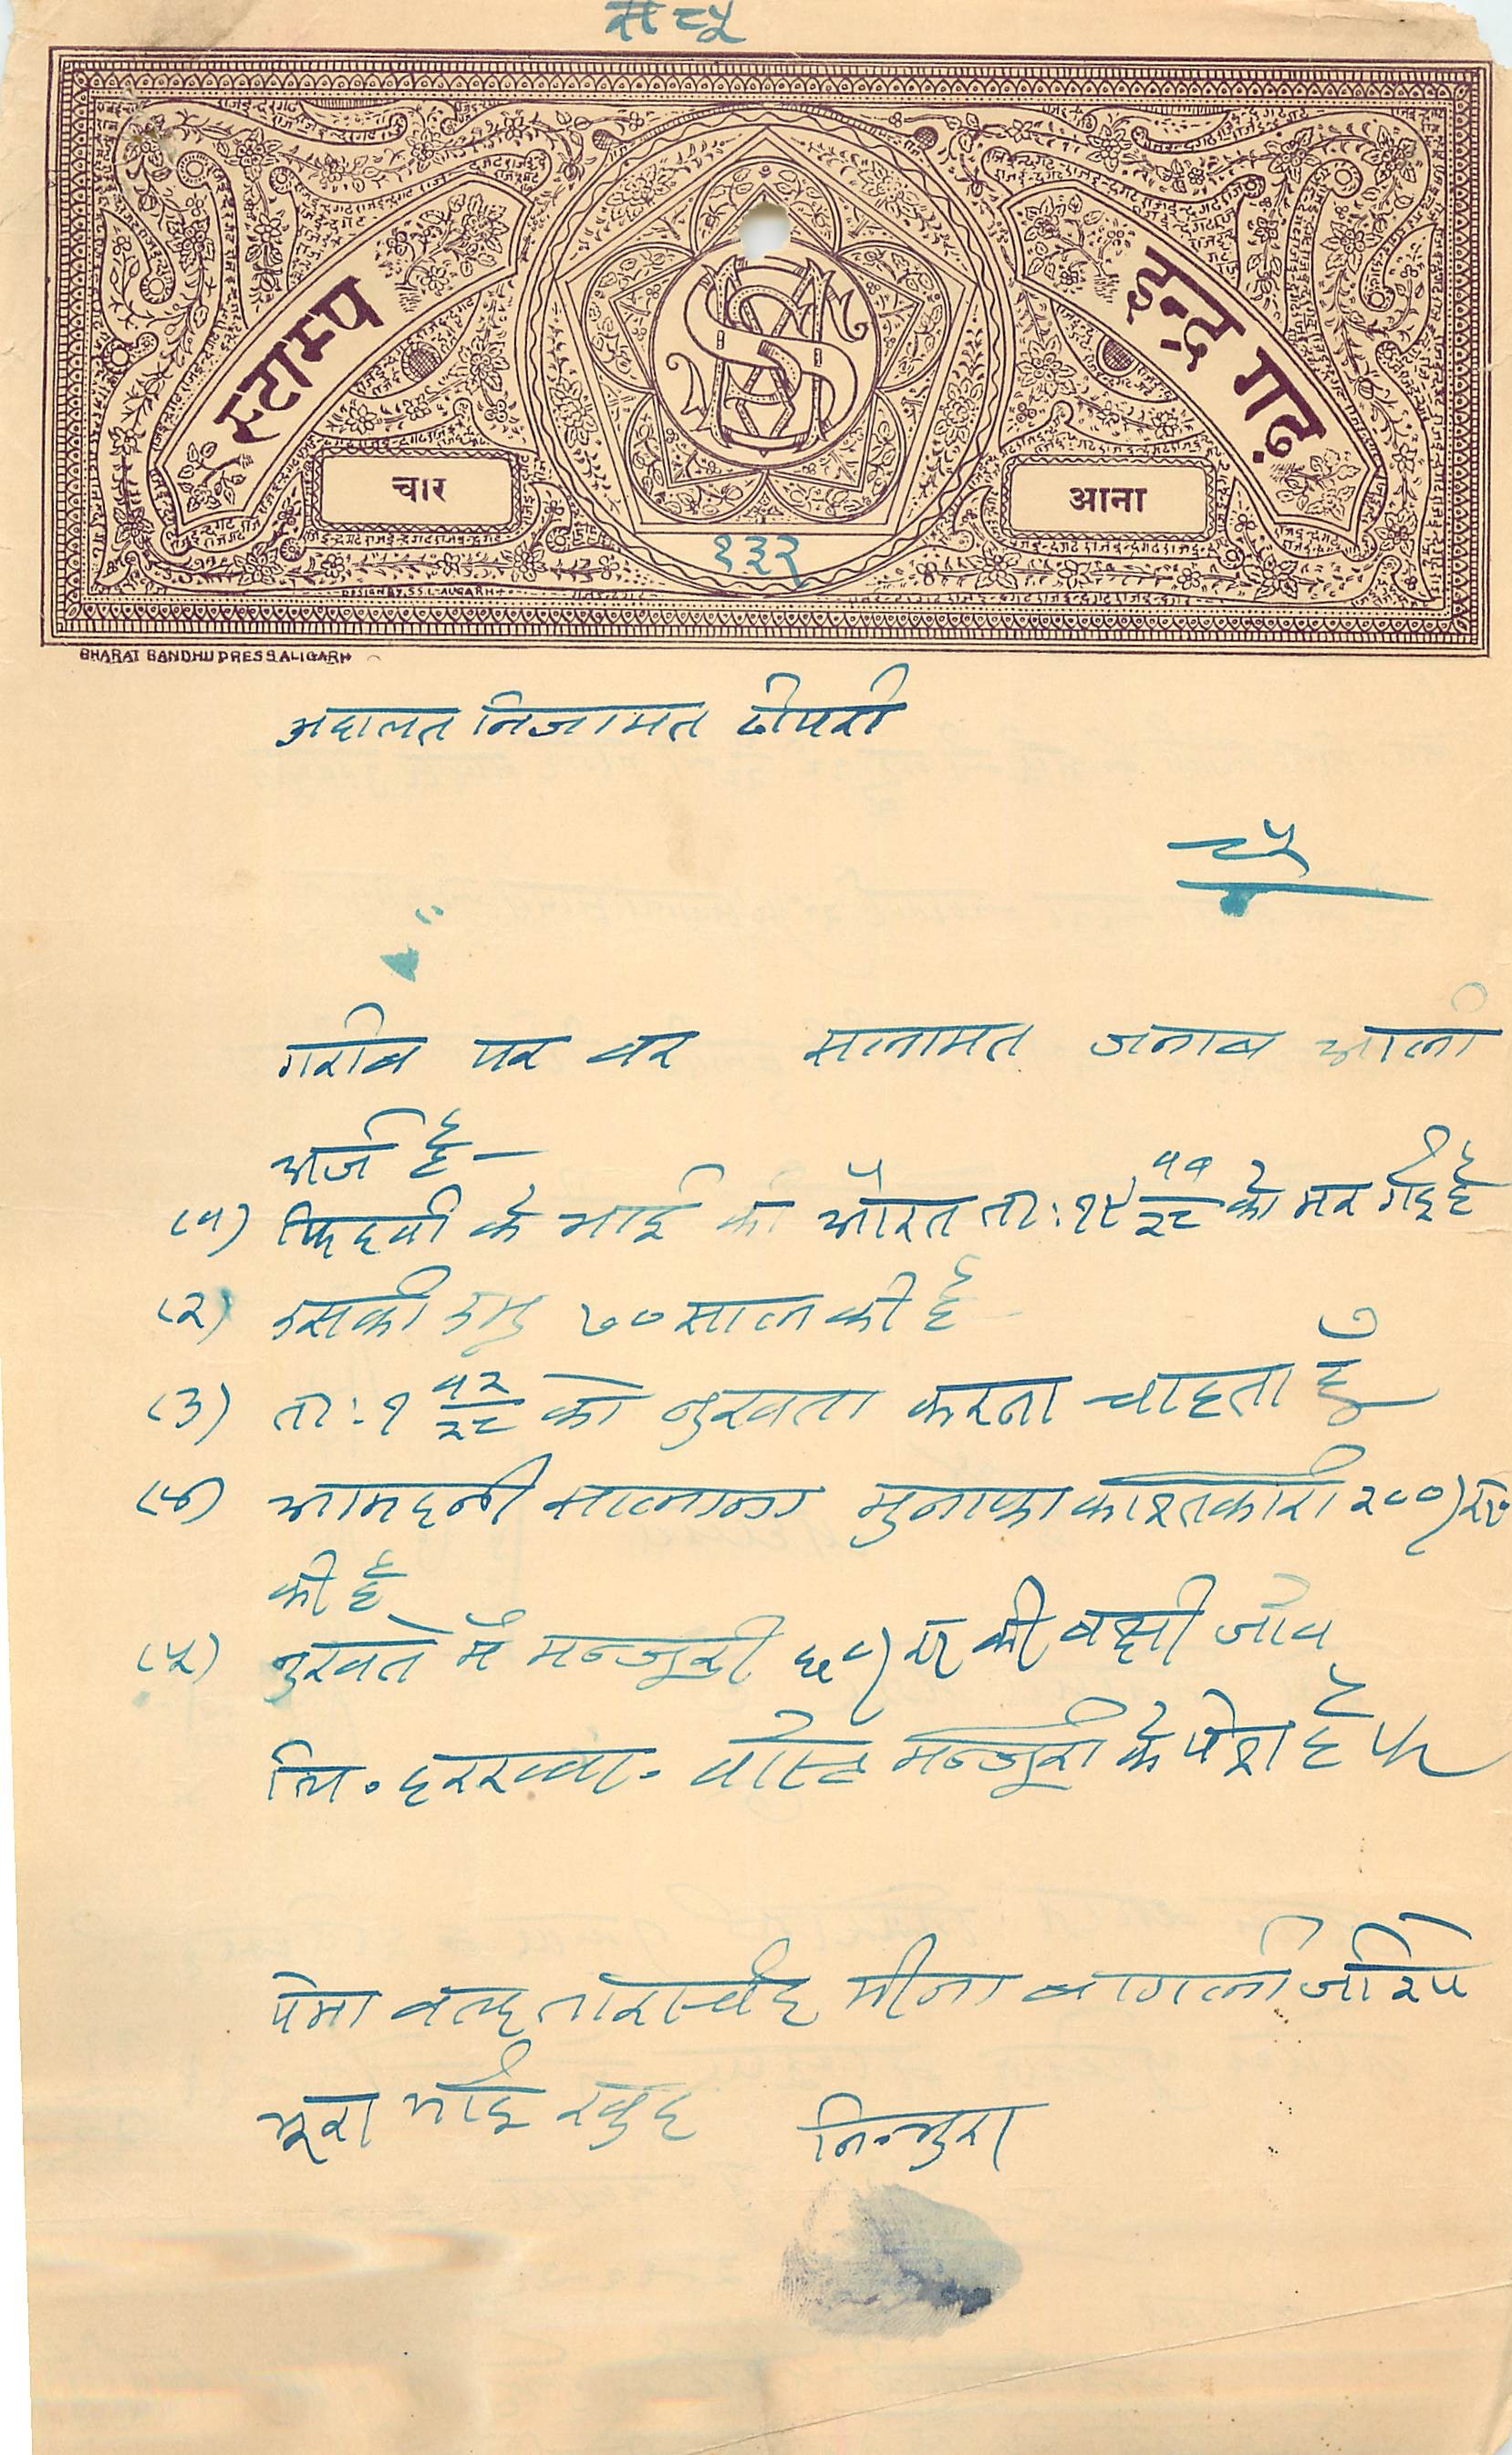 स्टाम्प
इन्द्र गढ़
चार
आना
१३२
DESIGN BY. S.S.L-ALIGARH
BHARAT BANDHU PRESS ALIGARH
अदालत निजामत ढीपरी
गरीब पर वर सलामत जनाब आली
अर्ज है—
(१) फिदवी के भाई की औरत ता: १९ ११/२८ को मर गई है
(२) उसकी उमु ७० साल की है
(३) ता: १ १२/२८ को नुखता करना चाहता हूँ
(४) आमदनी सालाना मुनाफा काश्तकारी २००) रु०
की है
(५) नुखते में मन्जूरी की बक्षी जावे
दरख्वा. वास्ते मन्जूरी के पेश है
पेमा वल्द ताराचंद मीना
भूरा भाई खुद नि. भुरा